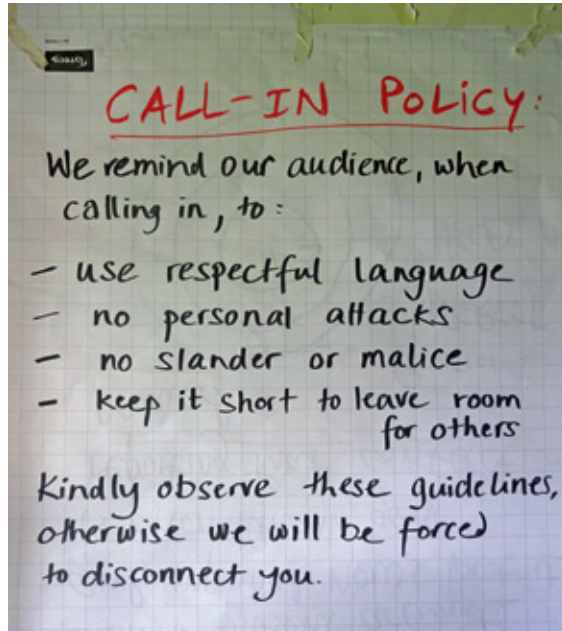 CALL-IN POLiCY:
We remind our audience, when
calling in, to:
- use respectful language
- no personal attacks
- no slander or malice
- keep it short to leave room
for others
Kindly observe these guidelines,
otherwise we will be forced
to disconnect you.